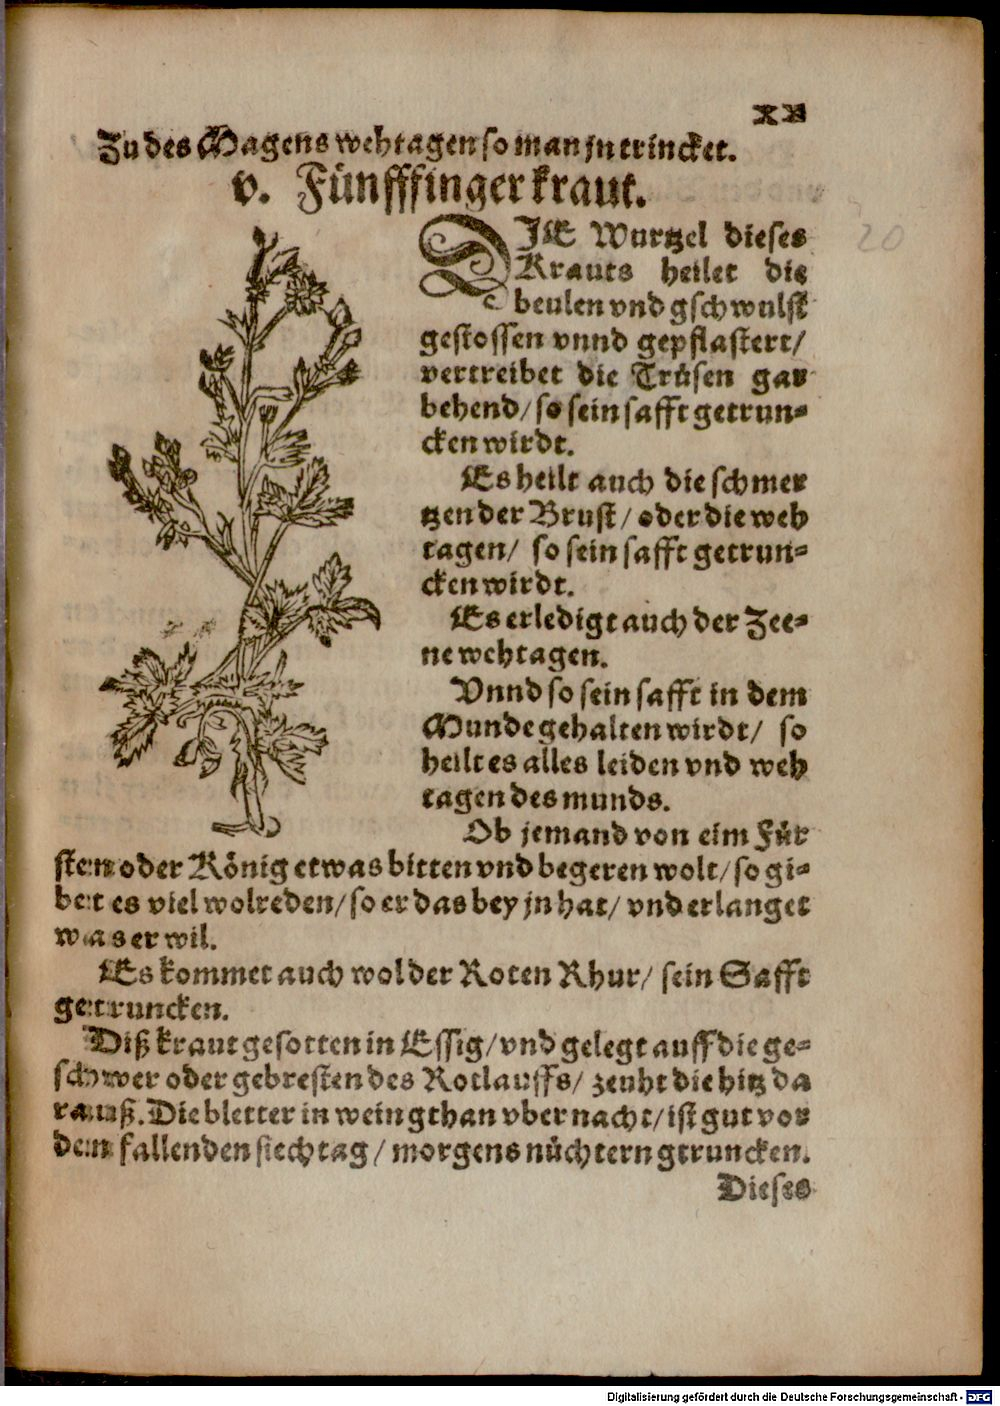 xx
Zu des Magens wehtagen so man jn trincket.
v. Fünfffingerkraut.
DIE Wurtzel dieses
Krauts heilet die
beulen vnd gschwulst
gestossen vnnd gepflastert/
vertreibet die Trüsen gar
behend/ so sein safft getrun-
cken wirdt.
Es heilt auch die schmer
tzen der Brust/ oder die weh
tagen/ so sein safft getrun-
cken wirdt.
Es erledigt auch der Zee-
ne wehtagen.
Vnnd so sein safft in dem
Munde gehalten wirdt/ so
heilt es alles leiden vnd weh
tagen des munds.
Ob jemand von eim Für
sten oder König etwas bitten vnd begeren wolt/ so gi-
bet es viel wolreden/ so er das bey jn hat/ vnd erlanget
was er wil.
Es kommet auch wol der Roten Rhur/ sein Safft
getruncken.
Diß kraut gesotten in Essig/ vnd gelegt auff die ge-
schwer oder gebresten des Rotlauffs/ zeuht die hitz da
rauß. Die bletter in wein gthan vber nacht/ ist gut vor
dem fallenden siechtag/ morgens nüchtern gtruncken.
Dieses
20
Digitalisierung gefördert durch die Deutsche Forschungsgemeinschaft - DFG